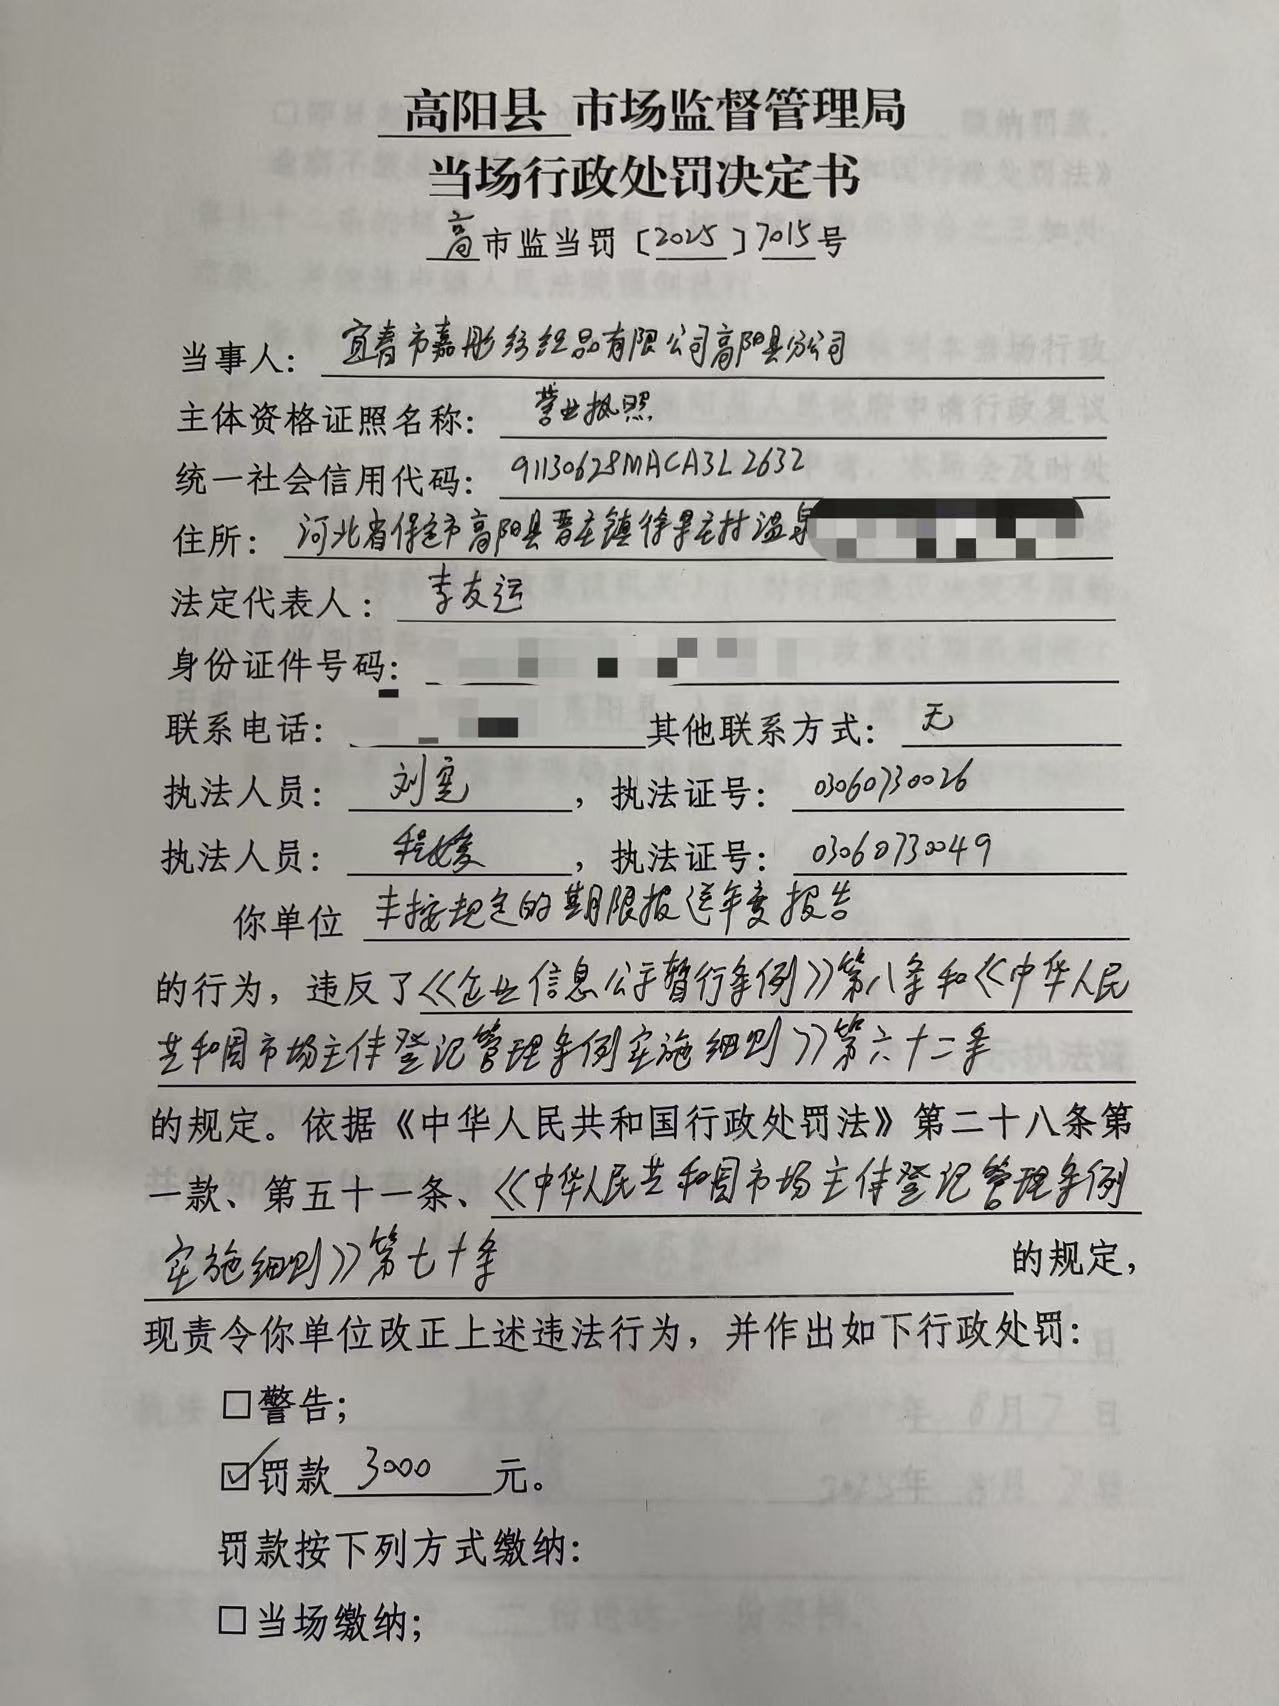 高阳县 市场监督管理局
当场行政处罚决定书
高市监当罚〔2025〕7015号
当事人：宜春市嘉彤纺织品有限公司高阳县分公司
主体资格证照名称：营业执照
统一社会信用代码：91130628MACA3L2632
住所：河北省保定市高阳县晋庄镇徐果庄村温泉
法定代表人：李友运
身份证件号码：
联系电话： 其他联系方式：无
执法人员：刘宽，执法证号：03060730026
执法人员：程媛，执法证号：03060730049
你单位 未按规定的期限报送年度报告
的行为，违反了《企业信息公示暂行条例》第八条和《中华人民
共和国市场主体登记管理条例实施细则》第六十二条
的规定。依据《中华人民共和国行政处罚法》第二十八条第
一款、第五十一条、《中华人民共和国市场主体登记管理条例
实施细则》第七十条 的规定，
现责令你单位改正上述违法行为，并作出如下行政处罚：
□警告；
☑罚款 3000 元。
罚款按下列方式缴纳：
□当场缴纳；